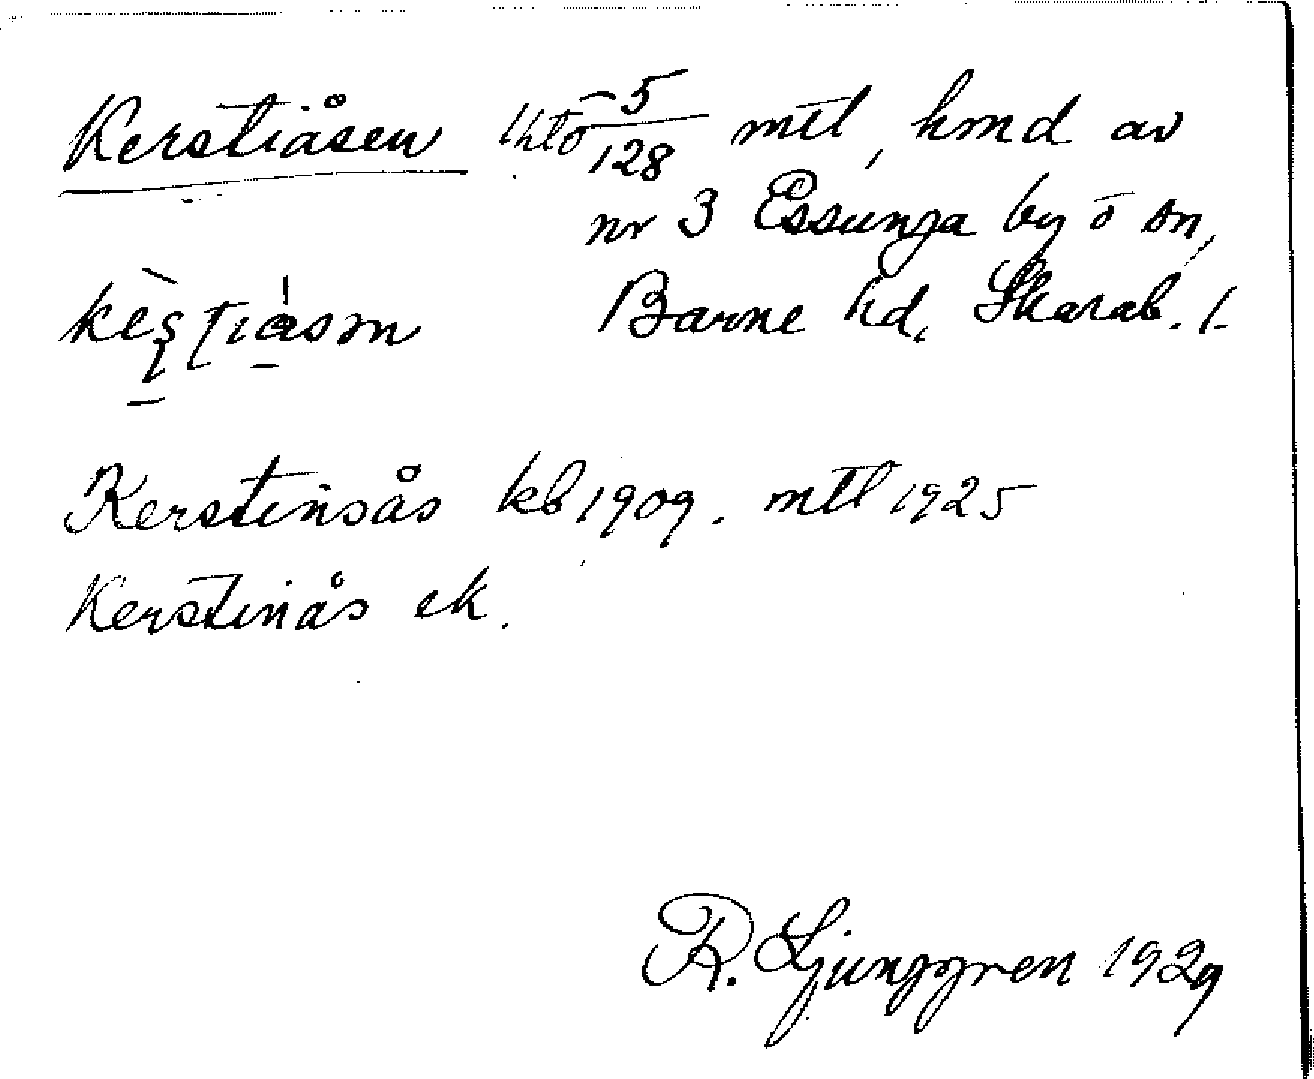 Kerstiåsen lhtō 5/128 mtl, hmd av
nr 3 Essunga by ō sn,
Barne hd, Skarab. l.
Kerstinsås kb 1909. mtl 1925
Kerstinås ek.
R. Ljunggren 1929